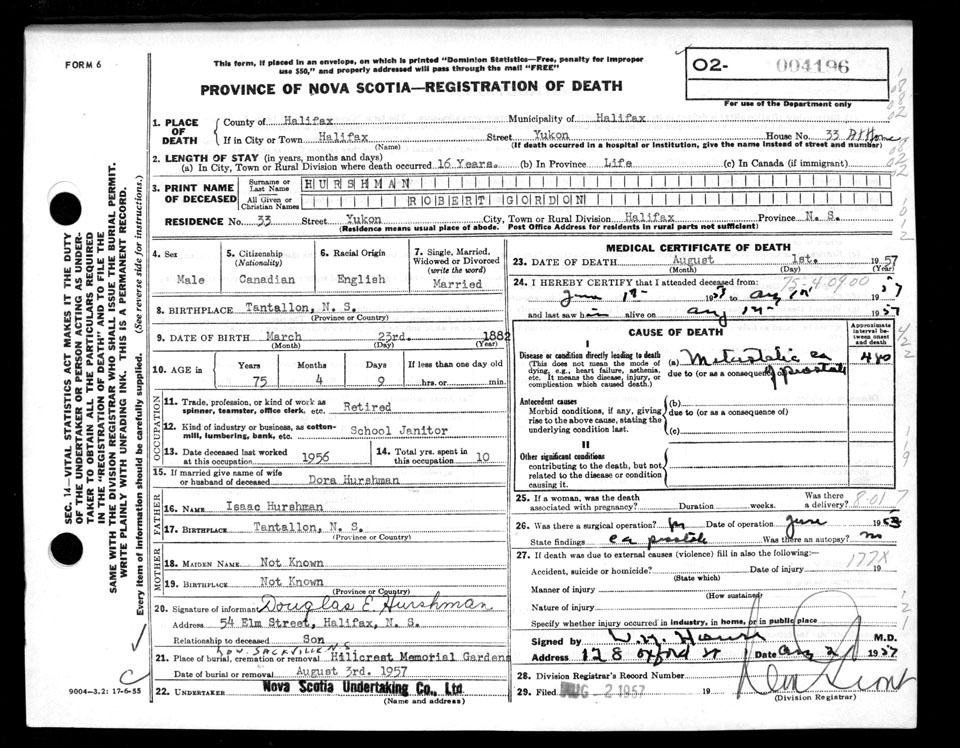 FORM 6
This form, if placed in an envelope, on which is printed "Dominion Statistics—Free, penalty for improper
use $50," and properly addressed will pass through the mail "FREE"
PROVINCE OF NOVA SCOTIA—REGISTRATION OF DEATH
O2- 004196
For use of the Department only
1. PLACE OF DEATH
County of Halifax Municipality of Halifax
If in City or Town Halifax Street Yukon House No. 33 At Home
(Name) (If death occurred in a hospital or Institution, give the name instead of street and number)
2. LENGTH OF STAY (in years, months and days)
(a) In City, Town or Rural Division where death occurred 16 Years. (b) In Province Life (c) In Canada (if immigrant)
3. PRINT NAME OF DECEASED
Surname or Last Name HURSHMAN
All Given or Christian Names ROBERT GORDON
RESIDENCE No. 33 Street Yukon City, Town or Rural Division Halifax Province N. S.
(Residence means usual place of abode. Post Office Address for residents in rural parts not sufficient)
4. Sex Male
5. Citizenship (Nationality) Canadian
6. Racial Origin English
7. Single, Married, Widowed or Divorced (write the word) Married
8. BIRTHPLACE Tantallon, N. S.
(Province or Country)
9. DATE OF BIRTH March 23rd. 1882
(Month) (Day) (Year)
10. AGE in Years Months Days If less than one day old
75 4 9 hrs. or min.
OCCUPATION
11. Trade, profession, or kind of work as spinner, teamster, office clerk, etc. Retired
12. Kind of industry or business, as cotton-mill, lumbering, bank, etc. School Janitor
13. Date deceased last worked at this occupation 1956
14. Total yrs. spent in this occupation 10
15. If married give name of wife or husband of deceased Dora Hurshman
FATHER
16. NAME Isaac Hurshman
17. BIRTHPLACE Tantallon, N. S.
(Province or Country)
MOTHER
18. MAIDEN NAME Not Known
19. BIRTHPLACE Not Known
(Province or Country)
20. Signature of informant Douglas E Hurshman
Address 54 Elm Street, Halifax, N. S.
Relationship to deceased Son
SACKVILLE N.S.
21. Place of burial, cremation or removal Hillcrest Memorial Gardens
Date of burial or removal August 3rd. 1957
22. UNDERTAKER Nova Scotia Undertaking Co., Ltd.
(Name and address)
MEDICAL CERTIFICATE OF DEATH
23. DATE OF DEATH August 1st. 1957
(Month) (Day) (Year)
75-4-0900
24. I HEREBY CERTIFY that I attended deceased from:
June 1953 to Aug 1957
and last saw him alive on Aug 1957
CAUSE OF DEATH
Approximate interval between onset and death
I
Disease or condition directly leading to death (a) Metastatic ca
(This does not mean the mode of dying, e.g., heart failure, asthenia, etc. It means the disease, injury, or complication which caused death.)
due to (or as a consequence of) prostate
Antecedent causes (b)
Morbid conditions, if any, giving rise to the above cause, stating the underlying condition last.
due to (or as a consequence of)
(c)
II
Other significant conditions
contributing to the death, but not related to the disease or condition causing it.
25. If a woman, was the death associated with pregnancy? Duration weeks. Was there a delivery?
8-01
26. Was there a surgical operation? Date of operation June 1953
State findings ca prostate Was there an autopsy? no
27. If death was due to external causes (violence) fill in also the following:—
177X
Accident, suicide or homicide? Date of injury 19
(State which)
Manner of injury
(How sustained)
Nature of injury
Specify whether injury occurred in industry, in home, or in public place
Signed by M.D.
Address 128 Oxford St Date Aug 2 1957
28. Division Registrar's Record Number
29. Filed AUG - 2 1957 19
(Division Registrar)
9004—3.2: 17-6-55
SEC. 14—VITAL STATISTICS ACT MAKES IT THE DUTY
OF THE UNDERTAKER OR PERSON ACTING AS UNDER-
TAKER TO OBTAIN ALL THE PARTICULARS REQUIRED
IN THE "REGISTRATION OF DEATH" AND TO FILE THE
SAME WITH THE DIVISION REGISTRAR WHO SHALL ISSUE THE BURIAL PERMIT.
WRITE PLAINLY WITH UNFADING INK. THIS IS A PERMANENT RECORD.
Every item of information should be carefully supplied. (See reverse side for instructions.)